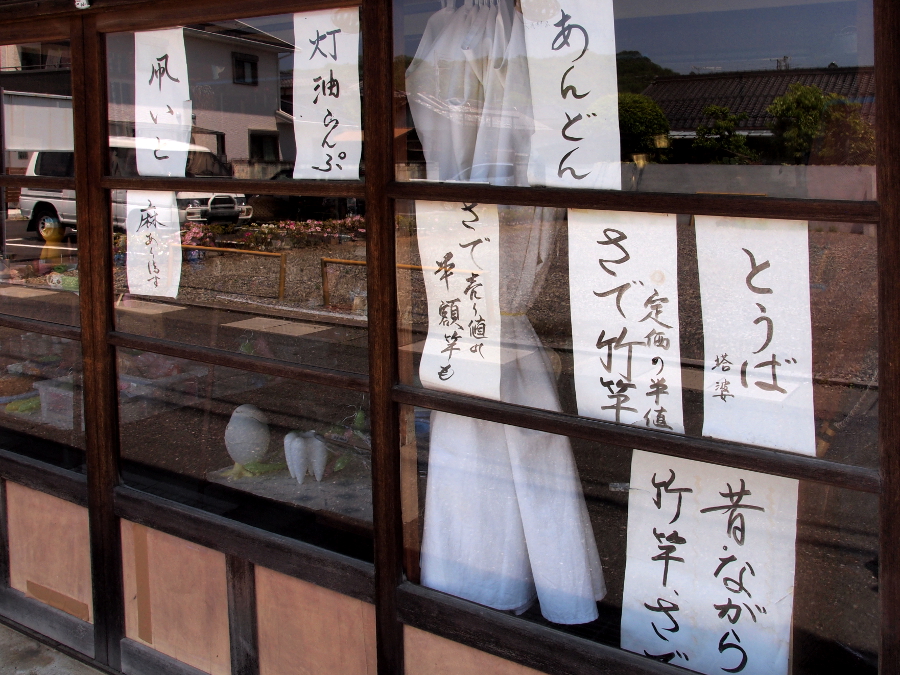 凧いと
灯油らんぷ
あんどん
麻
さで売り値の
半額竿も
定価の半値
さで竹竿
とうば
塔婆
昔ながら
竹竿、さで